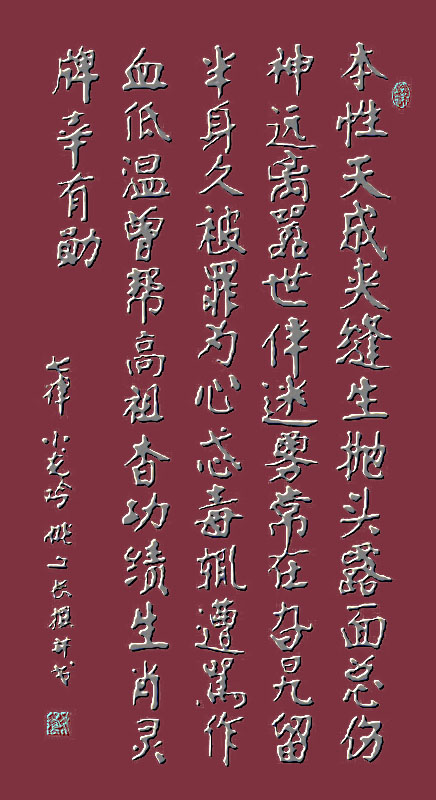 本性天成夹缝生抛头露面总伤
神远离嚣世伴迷雾常在旮旯留
半身久被罪为心忒毒辄遭骂作
血低温曾帮高祖杳功绩生肖灵
牌幸有勋
七律 小龙吟 撰并书